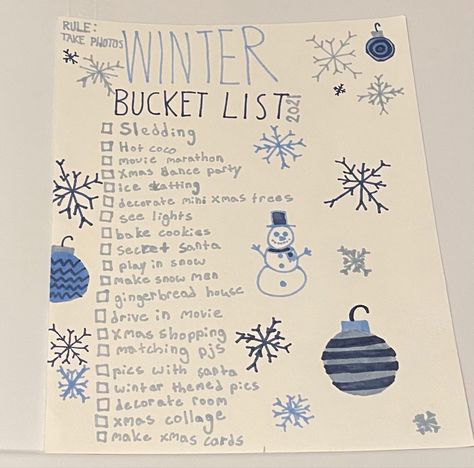 RULE:
TAKE PHOTOS
WINTER
BUCKET LIST
2021
Sledding
Hot coco
movie marathon
Xmas Dance party
ice skatting
decorate mini xmas trees
see lights
bake cookies
secret santa
play in snow
make snow man
gingerbread house
drive in movie
Xmas shopping
matching pjs
pics with santa
winter themed pics
decorate room
xmas collage
make xmas cards